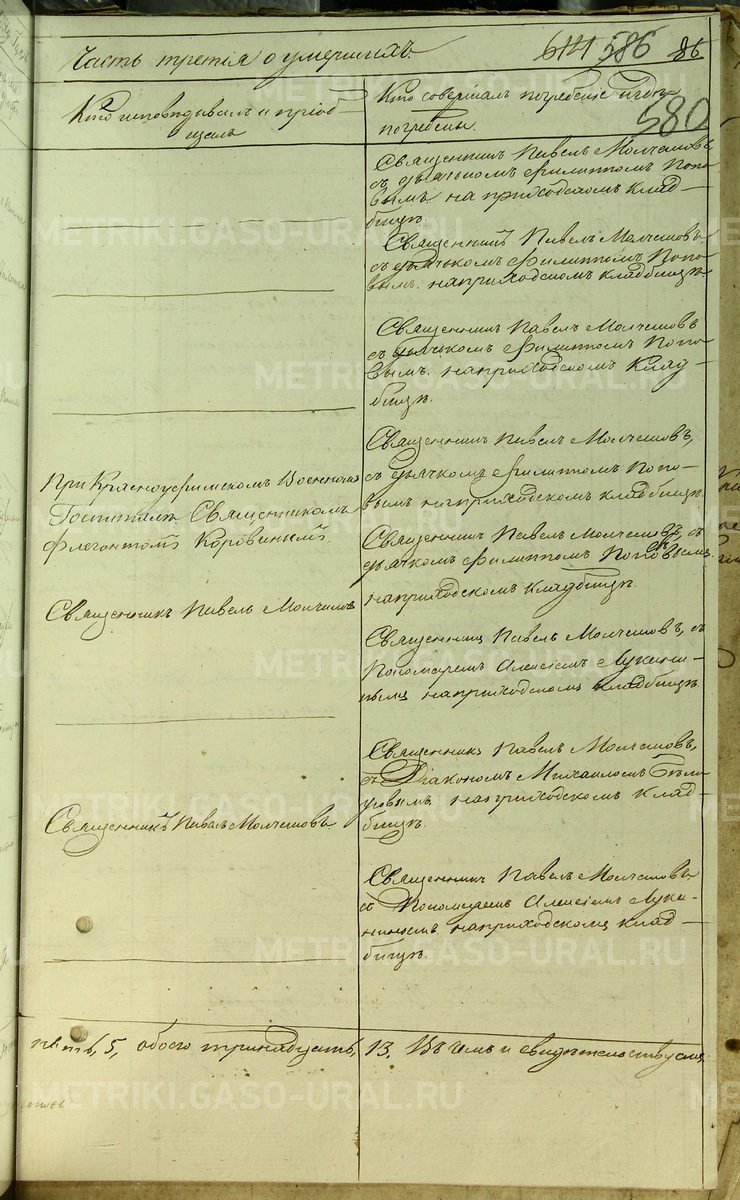 Часть третія о умершихъ.
641 586 86
580
Кто исповѣдывалъ и пріоб-
щалъ
Кто совершалъ погребеніе и гдѣ
погребены.
Священникъ Павелъ Молчановъ
съ дьячкомъ Филиппомъ Попо-
вымъ на приходскомъ клад-
бищѣ.
Священникъ Павелъ Молчановъ
съ дьячкомъ Филиппомъ Попо-
вымъ. на приходскомъ кладбищѣ.
Священникъ Павелъ Молчановъ
съ дьячкомъ Филиппомъ Попо-
вымъ. на приходскомъ клад-
бищѣ.
При Красноуфимскомъ Военномъ
Госпиталѣ Священникомъ
Флегонтомъ
Священникъ Павелъ Молчановъ,
съ дьячкомъ Филиппомъ Попо-
вымъ на приходскомъ кладбищѣ.
Священникъ Павелъ Молчановъ, съ
дьячкомъ Филиппомъ Поповымъ
на приходскомъ кладбищѣ.
Священникъ Павелъ Молчановъ
Священникъ Павелъ Молчановъ, съ
Пономаремъ Алексіемъ Лукани-
нымъ на приходскомъ кладбищѣ.
Священникъ Павелъ Молчановъ,
съ Діакономъ Михаиломъ
на приходскомъ клад-
бищѣ.
Священникъ Павелъ Молчановъ
Священникъ Павелъ Молчановъ
съ Пономаремъ Алексіемъ Лука-
нинымъ на приходскомъ клад-
бищѣ.
пять, 5, обоего тринадцать, 13. Въ чемъ и свидѣтельствуемъ
METRIKI.GASO-URAL.RU